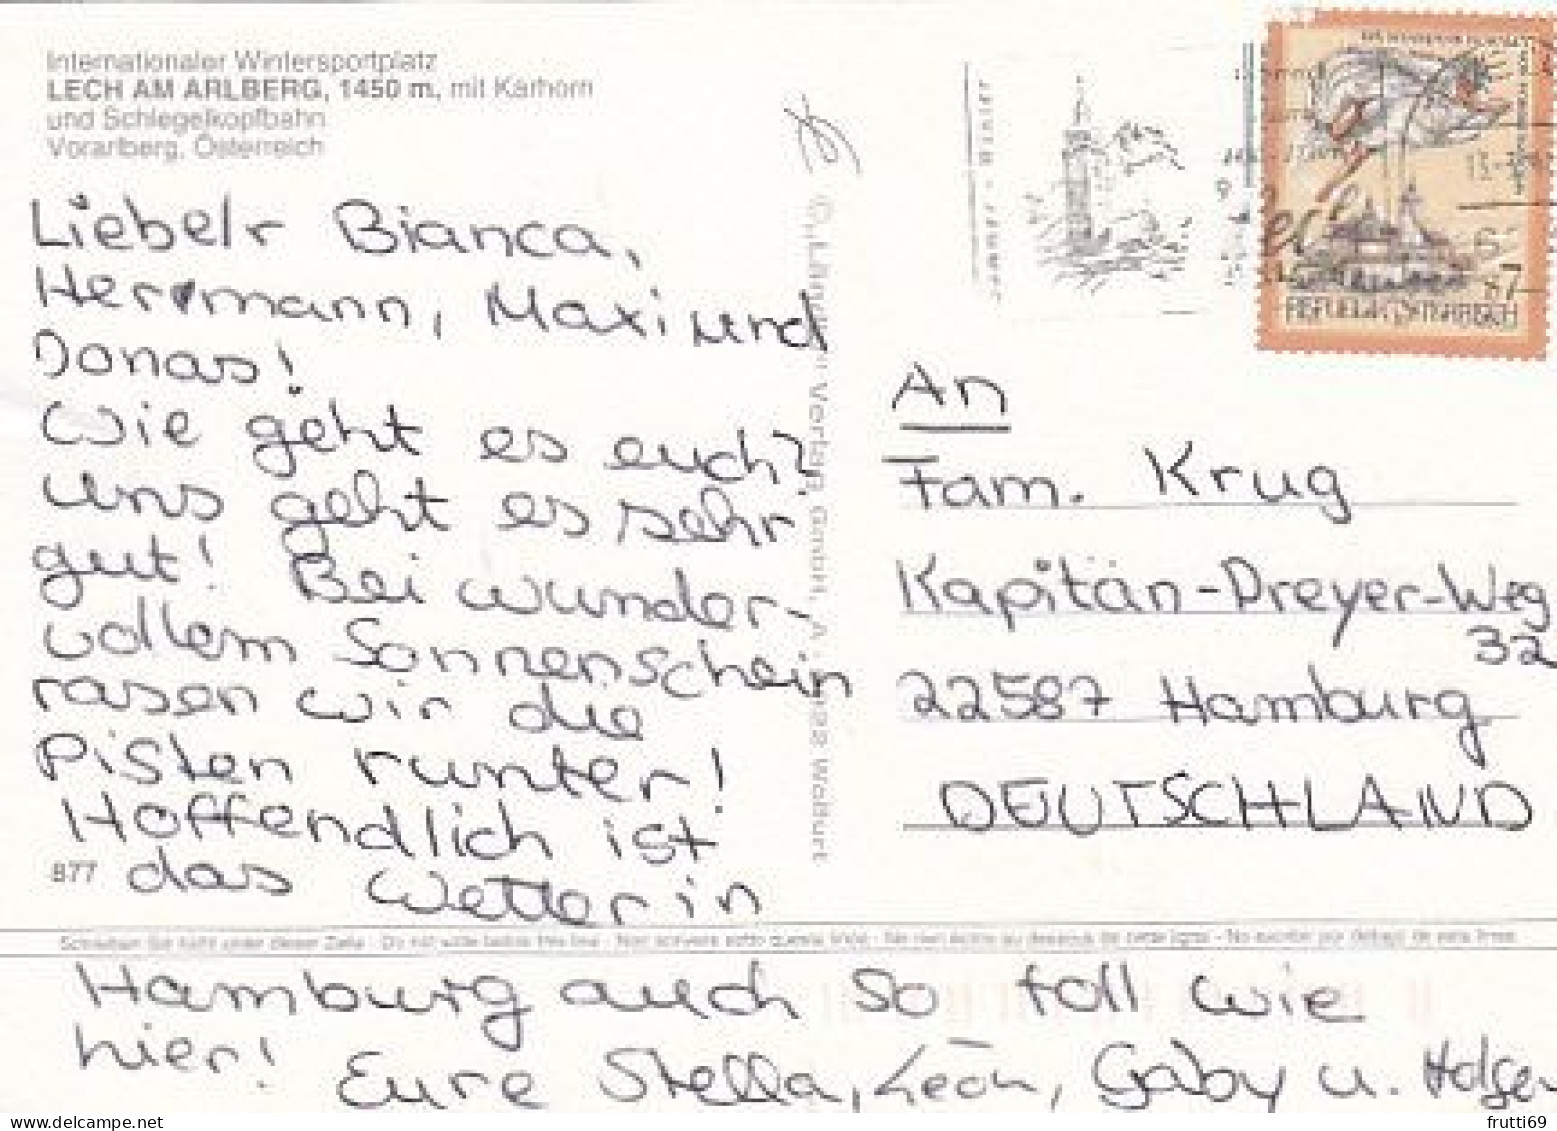 Internationaler Wintersportplatz
LECH AM ARLBERG, 1450 m, mit Karhorn
und Schlegelkopfbahn
Vorarlberg, Österreich
Liebelr Bianca,
Herrmann, Maxi und
Jonas!
Wie geht es euch?
Uns geht es sehr
gut! Bei wunder-
vollem Sonnenschein
rasen wir die
Pisten runter!
Hoffendlich ist
877 das Wetter in
Schreiben Sie nicht unter dieser Zeile - Do not write below this line - Non scrivere sotto questa linea - Ne rien écrire au dessous de cette ligne - No escribir por debajo de esta línea
Hamburg auch so toll wie
hier! Eure Stella, Leon, Gaby u. Holger
Verlag GmbH, A- Wolfurt
REPUBLIK ÖSTERREICH
An
Fam. Krug
Kapitän-Dreyer-Weg
32
22587 Hamburg
DEUTSCHLAND
frutti69